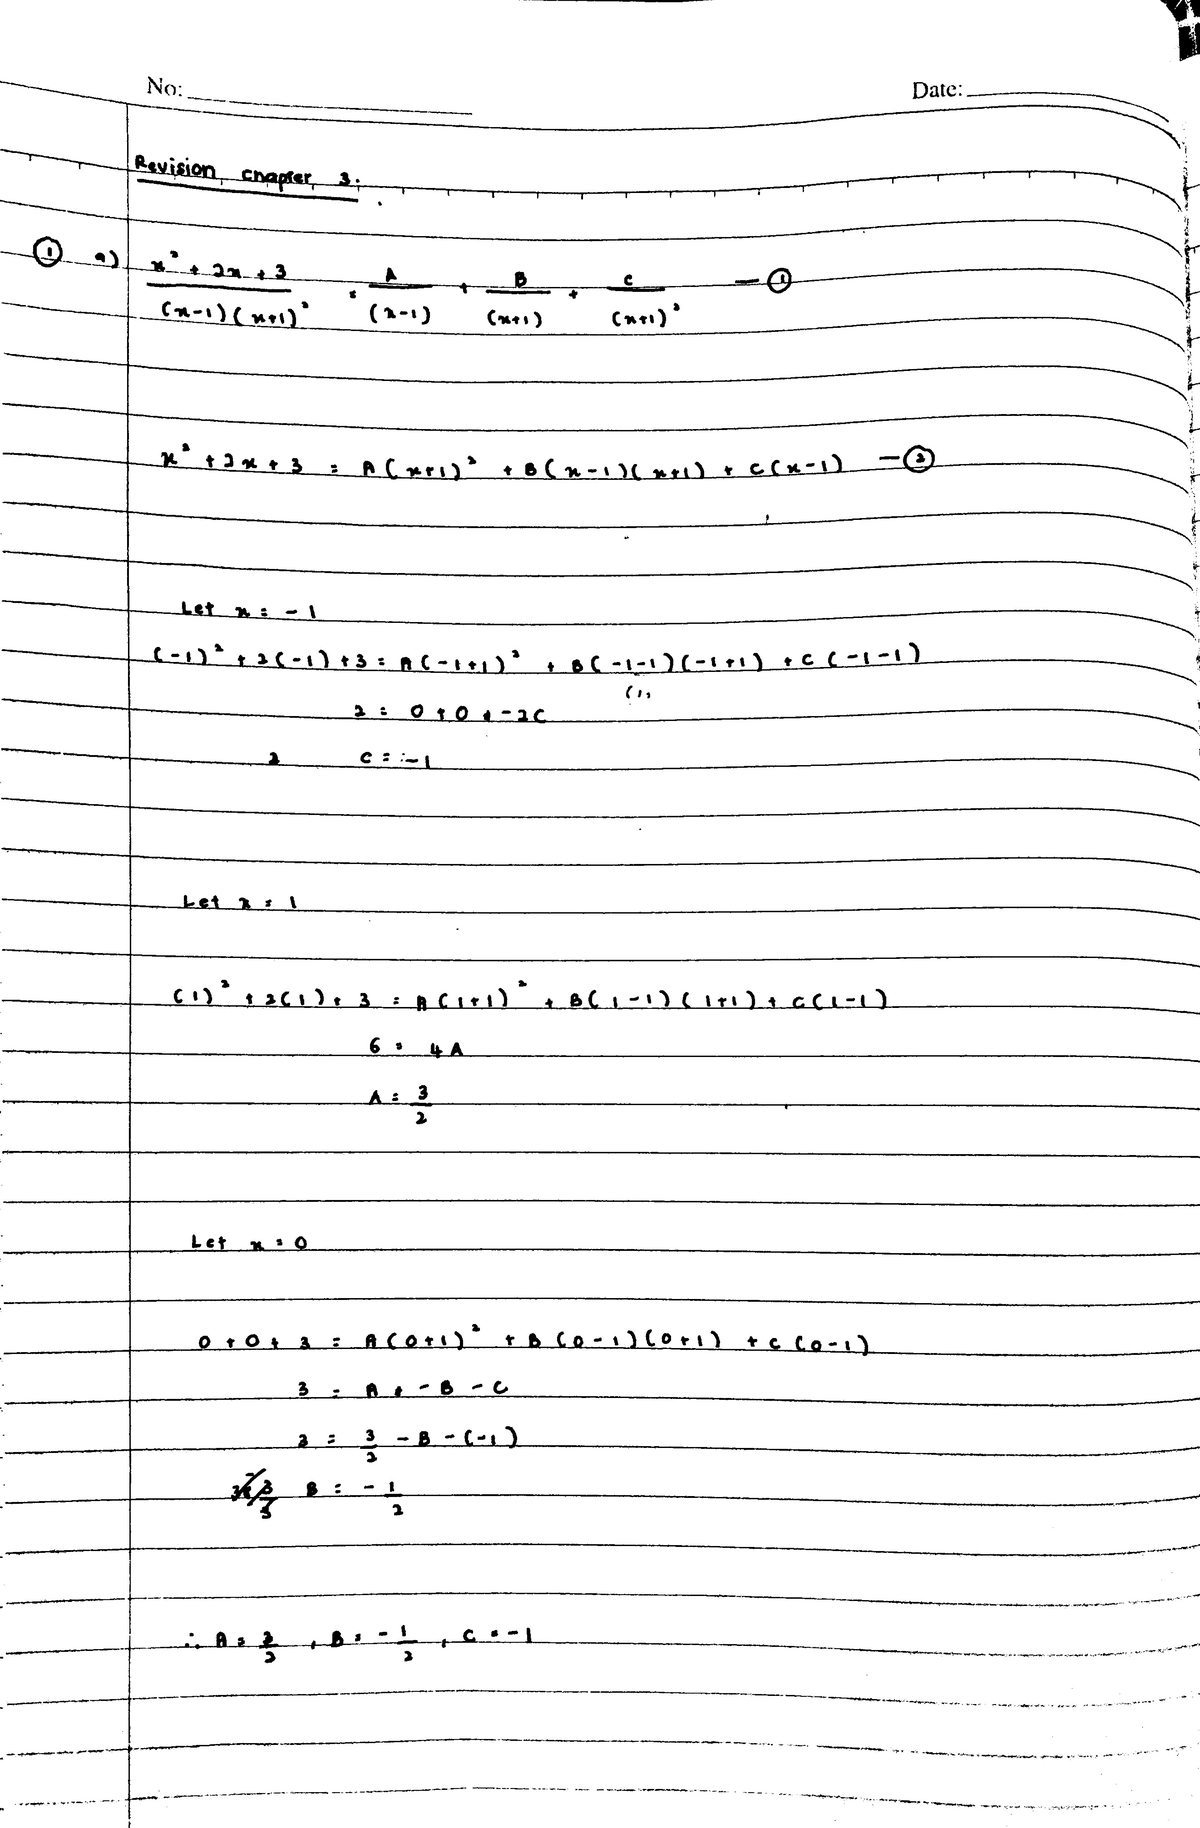 No: Date:
Revision chapter 3.
① a) x² + 2x + 3 / (x-1)(x+1)² = A / (x-1) + B / (x+1) + C / (x+1)² — ①
x² + 2x + 3 = A(x+1)² + B(x-1)(x+1) + C(x-1) — ②
Let x = -1
(-1)² + 2(-1) + 3 = A(-1+1)² + B(-1-1)(-1+1) + C(-1-1)
2 = 0 + 0 + -2C
2 C = -1
Let x = 1
(1)² + 2(1) + 3 = A(1+1)² + B(1-1)(1+1) + C(1-1)
6 = 4A
A = 3/2
Let x = 0
0 + 0 + 3 = A(0+1)² + B(0-1)(0+1) + C(0-1)
3 = A + -B - C
3 = 3/2 - B - (-1)
B = -1/2
∴ A = 3/2, B = -1/2, C = -1